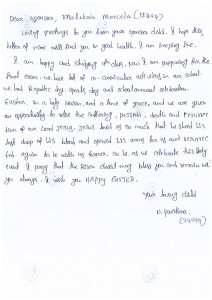 Dear sponsor, Malikais Marcela (18244)
Loving greetings to you from your sponsor child. I hope this
letter of mine will find you in good health. I am keeping fine.
I am happy and studying 9th class, now I am preparing for the
final exam. we had lot of co-curricular activities in our school.
we had Republic day, sports day and school annual celebration.
Easter, is a holy season, and a time of grace, and we are given
an opportunity to relive the suffering, passion, death and resurrec
tion of our Lord Jesus. Jesus loved us so much that he shed his
last drop of his blood and opened his arms for us and resurrec
ted again to be with us forever. So as we celebrate this Holy
event I pray that the Risen christ may bless you and remain with
you always. I wish you HAPPY EASTER.
your loving child
N. Pavithra.
(24599)